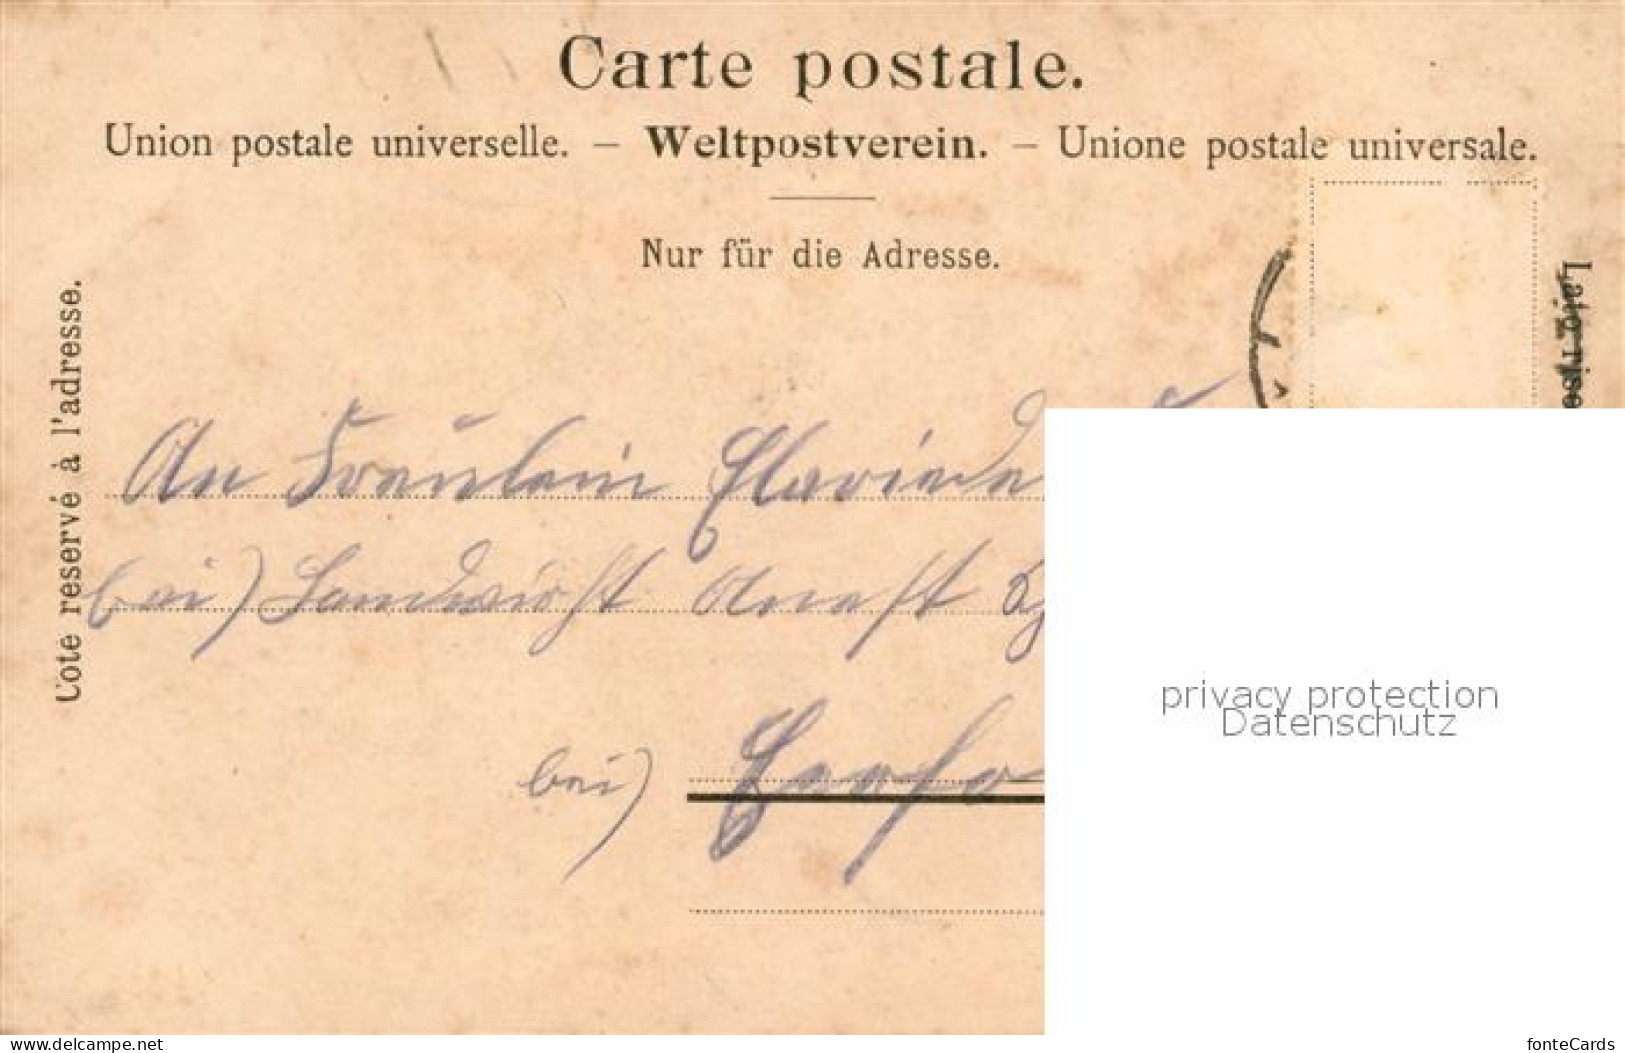 Carte postale.
Union postale universelle. – Weltpostverein. – Unione postale universale.
Nur für die Adresse.
Côte reservé à l'adresse.
Lato rise
An Fräulein
bei) Landwirth
bei)
privacy protection
Datenschutz
www.delcampe.net
fonteCards